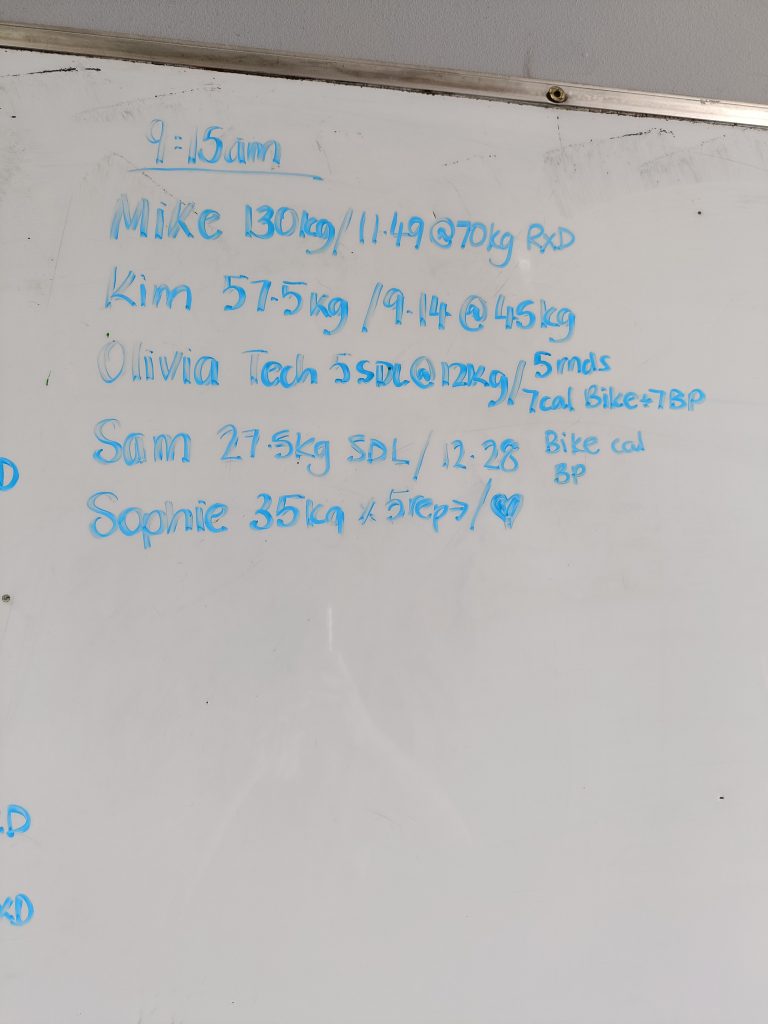 9:15am
Mike 130kg/11.49@70kg RxD
Kim 57.5kg/9.14@45kg
Olivia Tech 5SDL@12kg/5rnds
7cal Bike+7BP
Sam 27.5kg SDL/12.28 Bike cal
BP
Sophie 35kg x 5rep→/♥
D
D
xD